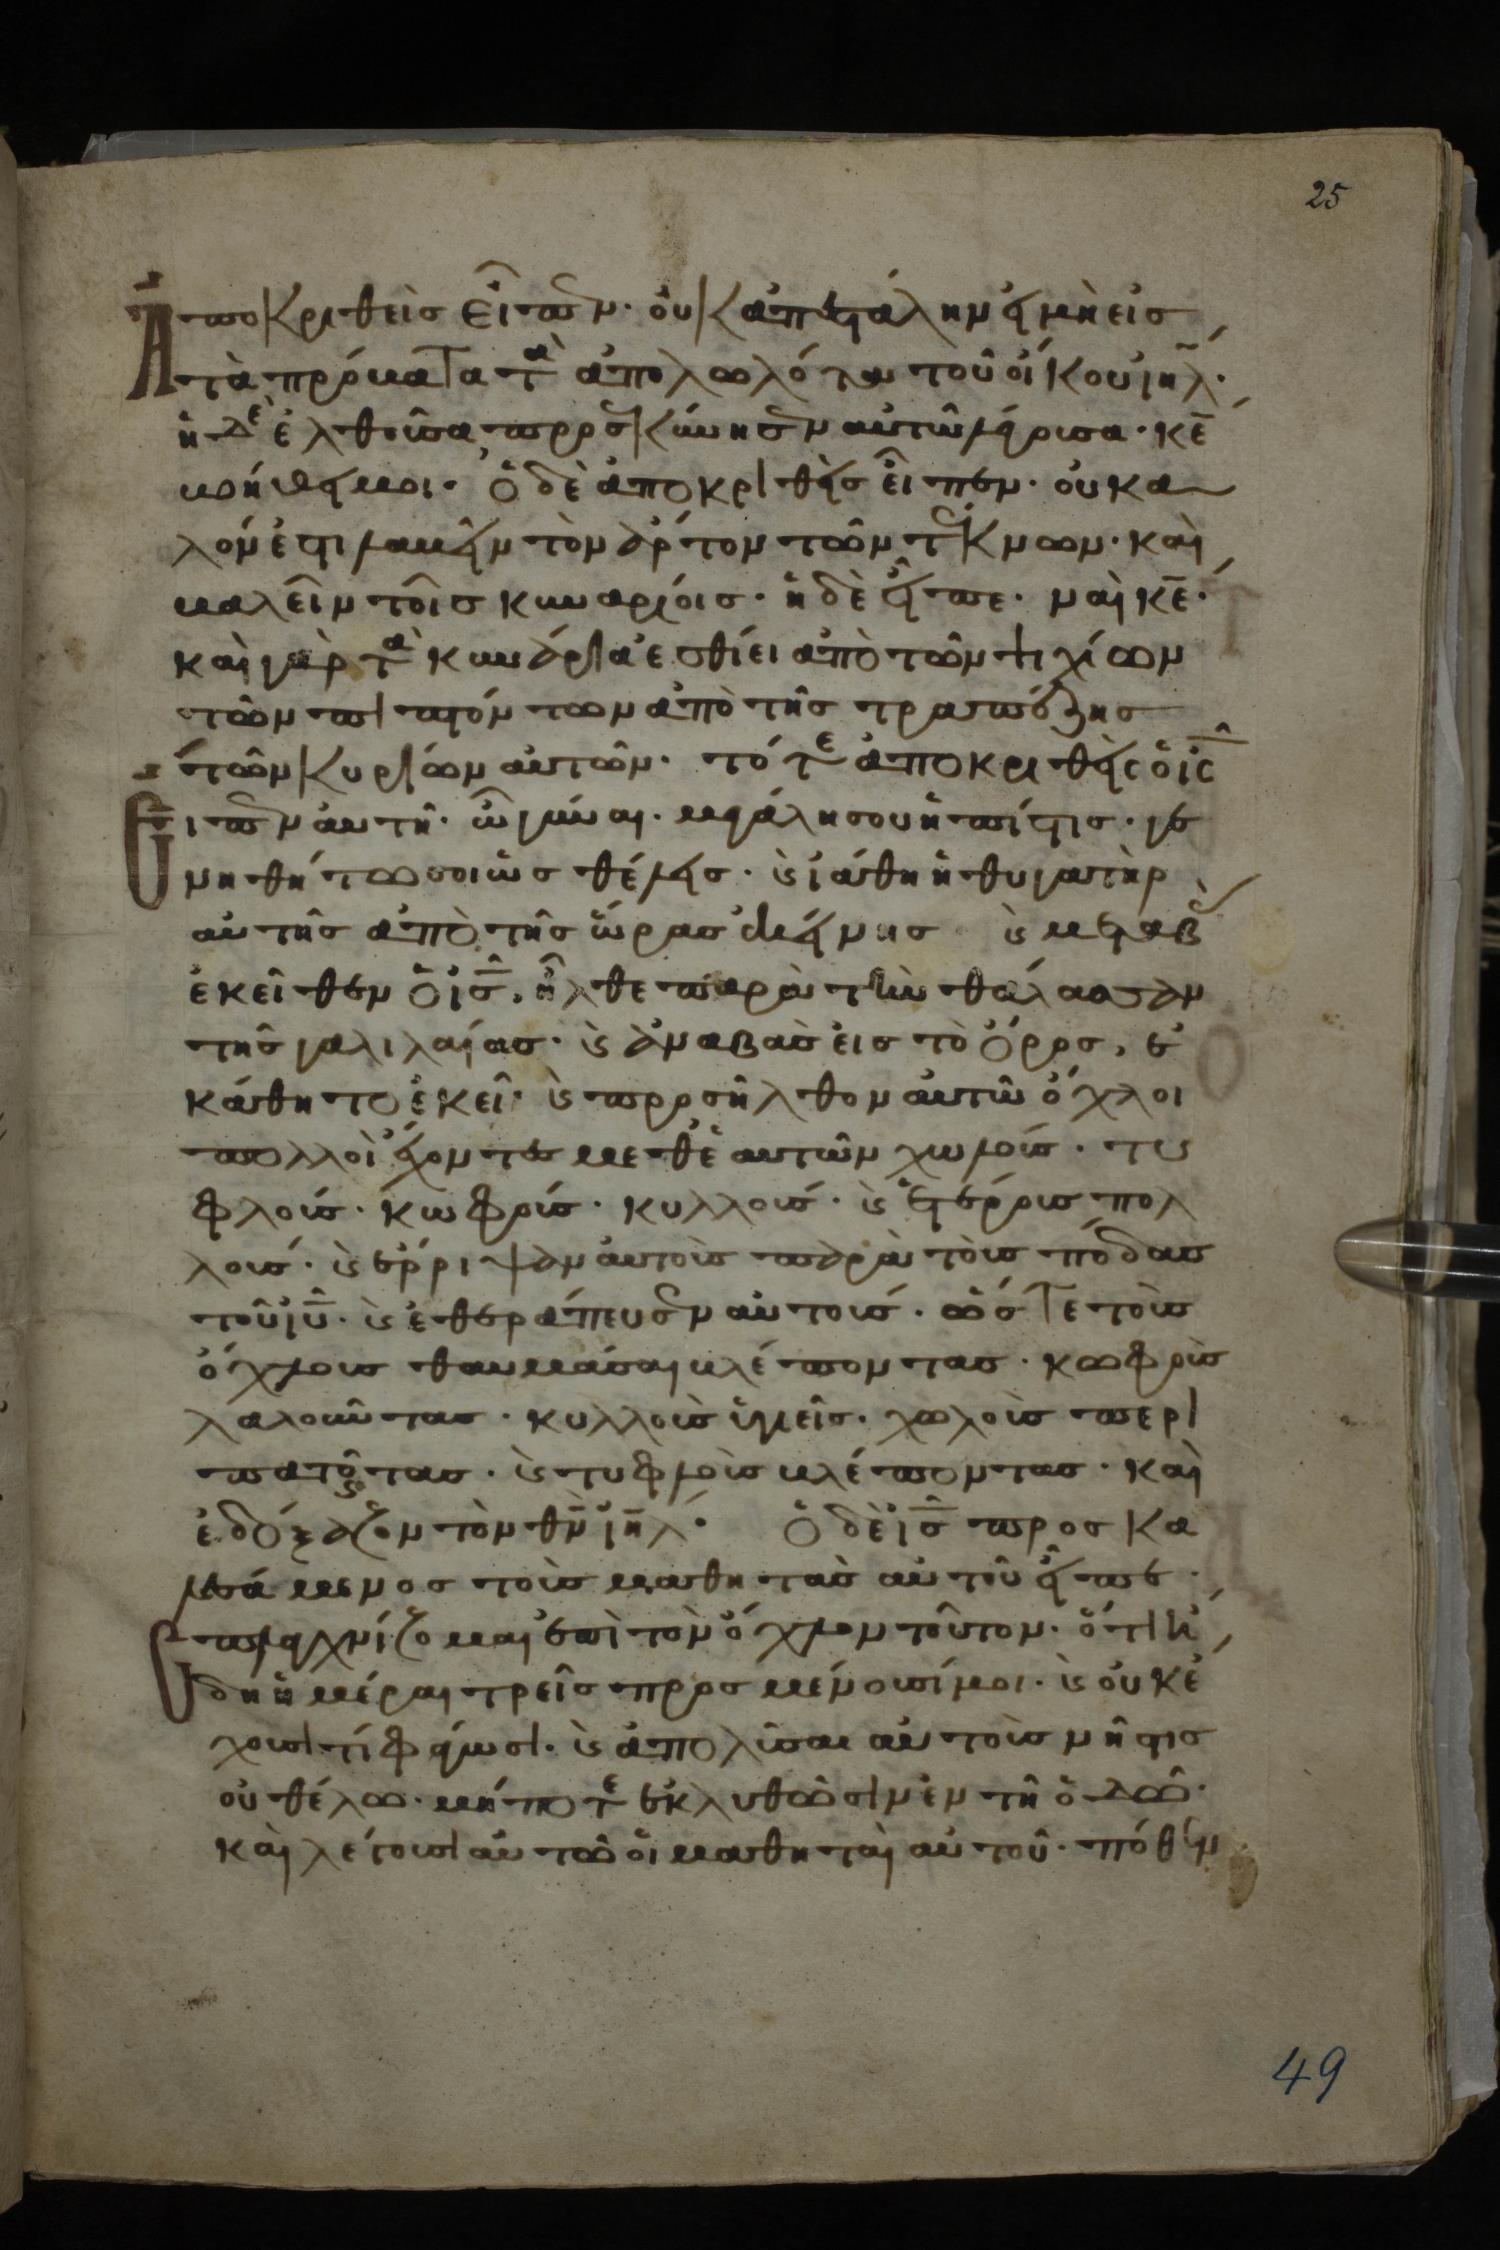 25
Ἀποκριθεὶς εἶπεν· οὐκ ἀπεστάλην εἰ μὴ εἰς
τὰ πρόβατα τὰ ἀπολωλότα τοῦ οἴκου ἰη̅λ·
ἡ δὲ ἐλθοῦσα προσεκύνησεν αὐτῶ λέγουσα· κε̅
βοήθει μοι· ὁ δὲ ἀποκριθεὶς εἶπεν· οὐ κα
λόν ἐστι λαβεῖν τὸν ἄρτον τῶν τέκνων· καὶ
βαλεῖν τοῖς κυναρίοις· ἡ δὲ εἶπε· ναὶ κε̅·
καὶ γὰρ τὰ κυνάρια ἐσθίει ἀπὸ τῶν ψιχίων
τῶν πιπτόντων ἀπὸ τῆς τραπέζης
τῶν κυρίων αὐτῶν· τότε ἀποκριθεὶς ὁ ις̅
Εἶπεν αὐτῆ· ὦ γύναι· μεγάλη σου ἡ πίστις· γε
νηθήτω σοι ὡς θέλεις· καὶ ἰάθη ἡ θυγάτηρ
αὐτῆς ἀπὸ τῆς ὥρας ἐκείνης καὶ μεταβὰς
ἐκεῖθεν ὁ ις̅, ἦλθε παρὰ τὴν θάλασσαν
τῆς γαλιλαίας· καὶ ἀναβὰς εἰς τὸ ὄρος, ἐ
κάθητο ἐκεῖ· καὶ προσῆλθον αὐτῶ ὄχλοι
πολλοὶ ἔχοντες μεθ' ἑαυτῶν χωλούς· τυ
φλούς· κωφούς· κυλλούς· καὶ ἑτέρους πολ
λούς· καὶ ἔρριψαν αὐτοὺς παρὰ τοὺς πόδας
τοῦ ιυ̅· καὶ ἐθεράπευσεν αὐτούς· ὥστε τοὺς
ὄχλους θαυμάσαι βλέποντας· κωφοὺς
λαλοῦντας· κυλλοὺς ὑγιεῖς· χωλοὺς περι
πατοῦντας· καὶ τυφλοὺς βλέποντας· καὶ
ἐδόξαζον τὸν θν̅ ιη̅λ· ὁ δὲ ις̅ προσκα
λεσάμενος τοὺς μαθητὰς αὐτοῦ εἶπε·
Σπλαγχνίζομαι ἐπὶ τὸν ὄχλον τοῦτον· ὅτι ἤ
δη ἡμέραι τρεῖς προσμένουσί μοι· καὶ οὐκ ἔ
χουσι τί φάγωσι· καὶ ἀπολῦσαι αὐτοὺς νήστις
οὐ θέλω· μήποτε ἐκλυθῶσιν ἐν τῆ ὁδῶ·
καὶ λέγουσι αὐτῶ οἱ μαθηταὶ αὐτοῦ· πόθεν
49